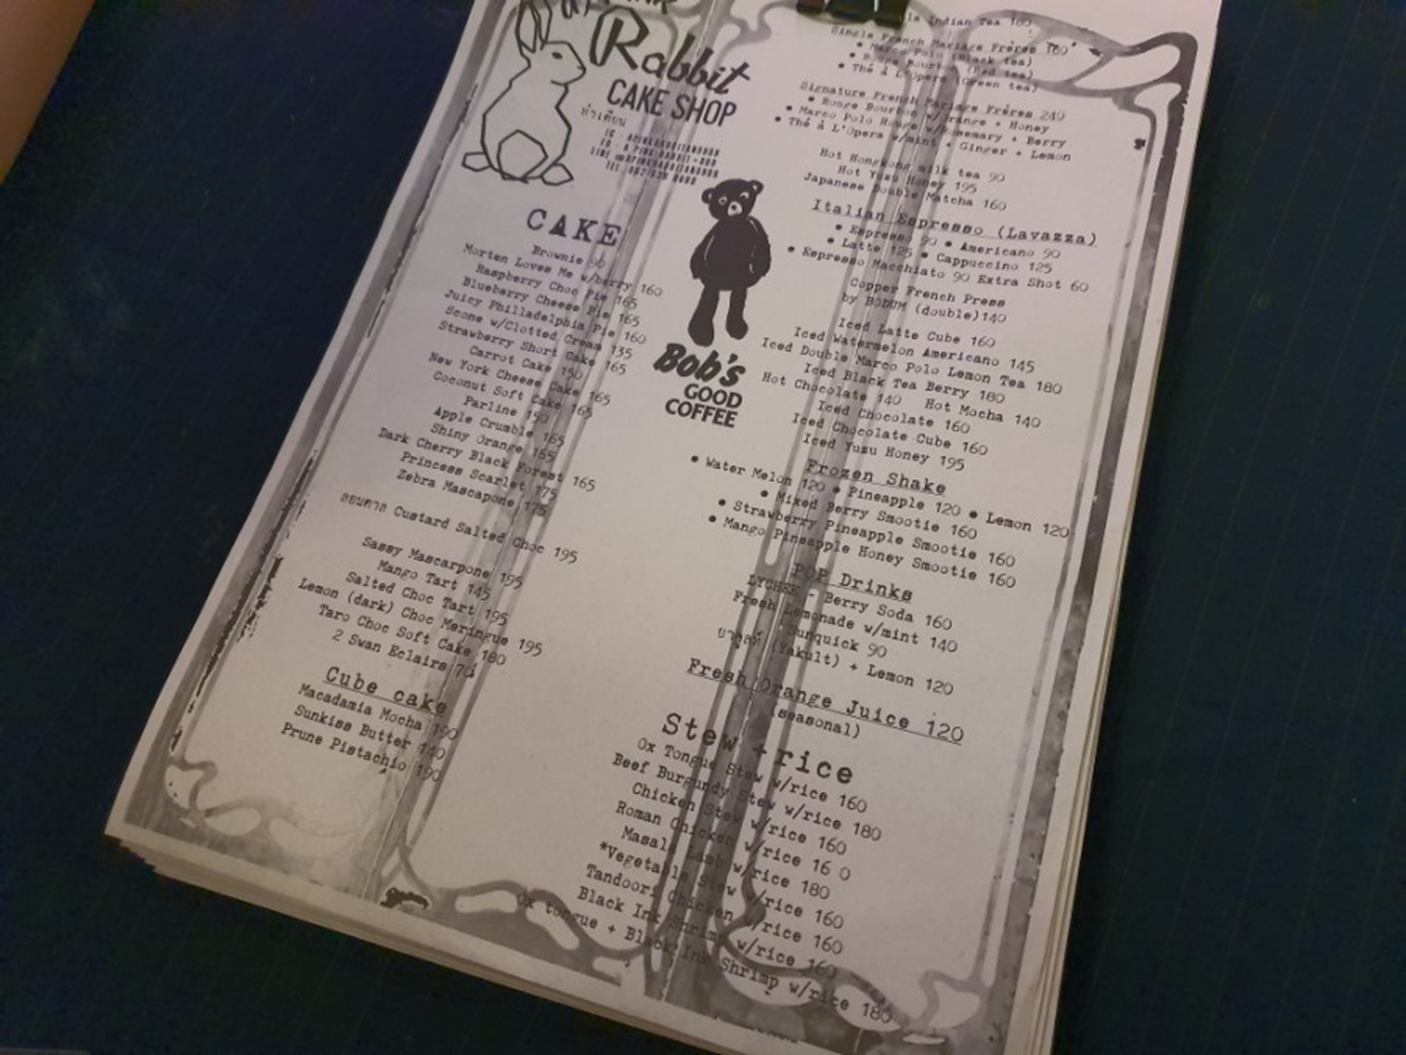 Rabbit
CAKE SHOP
ท่าเตียน
CAKE
Brownie 90
Morten Loves Me w/berry 160
Raspberry Choc Pie 165
Blueberry Cheese Pie 165
Juicy Philladelphia Pie 160
Scone w/Clotted Cream 135
Strawberry Short Cake 165
Carrot Cake 150
New York Cheese Cake 165
Coconut Soft Cake 165
Parline 150
Apple Crumble 165
Shiny Orange 165
Dark Cherry Black Forest 165
Princess Scarlet 175
Zebra Mascapone 175
Custard Salted Choc 195
Sassy Mascarpone 195
Mango Tart 145
Salted Choc Tart 195
Lemon (dark) Choc Meringue 195
Taro Choc Soft Cake 180
2 Swan Eclairs 70
Cube cake
Macadamia Mocha 190
Sunkiss Butter 140
Prune Pistachio 190
Bob's
GOOD
COFFEE
Indian Tea 180
Single French Mariage Frères 160
• Marco Polo (Black tea)
• Rouge Bourbon (Red tea)
• Thé à L'Opera (Green tea)
Signature French Mariage Frères 240
• Rouge Bourbon w/Orange + Honey
• Marco Polo Rouge w/Rosemary + Berry
• Thé à L'Opera w/mint + Ginger + Lemon
Hot Hongkong milk tea 90
Hot Yuzu Honey 195
Japanese Double Matcha 160
Italian Espresso (Lavazza)
• Espresso 90 • Americano 90
• Latte 125 • Cappuccino 125
• Espresso Macchiato 90 Extra Shot 60
Copper French Press
by BODUM (double)140
Iced Latte Cube 160
Iced Watermelon Americano 145
Iced Double Marco Polo Lemon Tea 180
Iced Black Tea Berry 180
Hot Chocolate 140 Hot Mocha 140
Iced Chocolate 160
Iced Chocolate Cube 160
Iced Yuzu Honey 195
Frozen Shake
• Water Melon 120 • Pineapple 120 • Lemon 120
• Mixed Berry Smootie 160
• Strawberry Pineapple Smootie 160
• Mango Pineapple Honey Smootie 160
POP Drinks
LYCHEE - Berry Soda 160
Fresh Lemonade w/mint 140
Sunquick 90
ยาคูลท์ (Yakult) + Lemon 120
Fresh Orange Juice 120
(seasonal)
Stew + rice
Ox Tongue Stew w/rice 160
Beef Burgundy Stew w/rice 180
Chicken Stew w/rice 160
Roman Chicken w/rice 16 0
Masala Lamb w/rice 180
*Vegetable Stew w/rice 160
Tandoori Chicken w/rice 160
Black Ink Shrimp w/rice 160
Ox tongue + Black Ink Shrimp w/rice 180